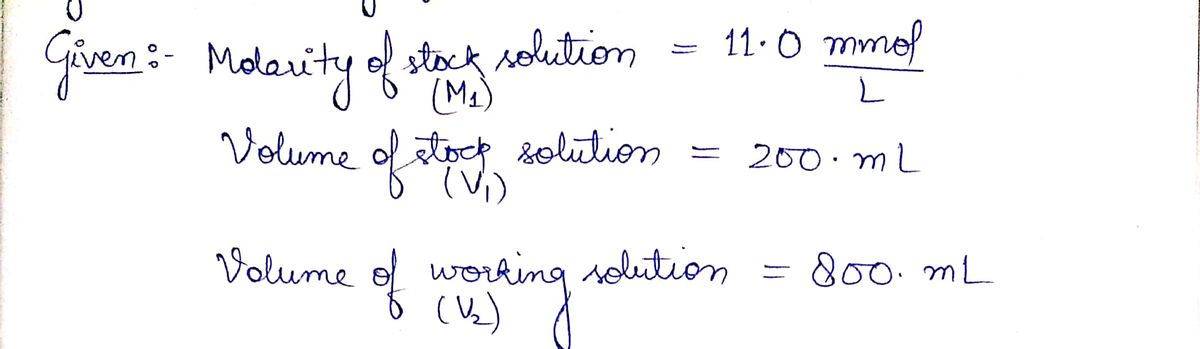 Given:- Molarity of stock solution = 11.0 mmol/L
(M1)
Volume of stock solution = 200. mL
(V1)
Volume of working solution = 800. mL
(V2)